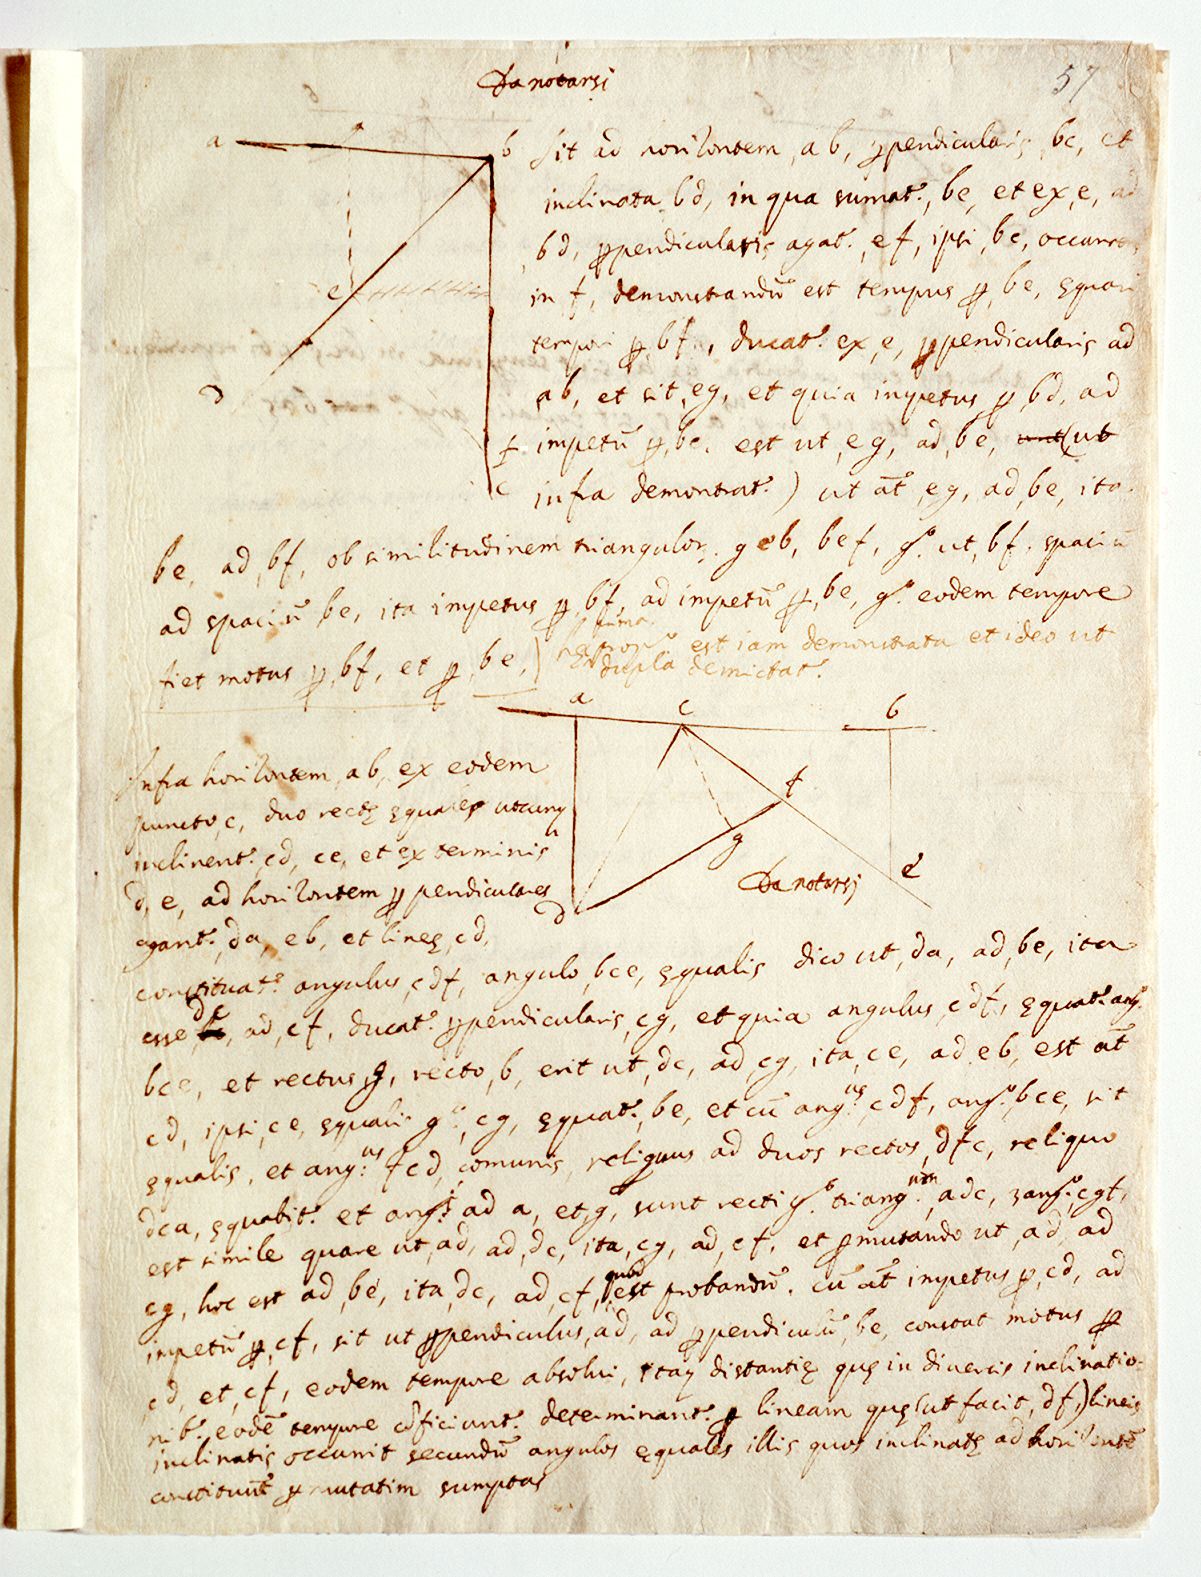 Da notarsi
57
a b
Sit ad horizontem, ab, ppendicularis, bc, et
inclinata, bd, in qua sumat., be, et ex, e, ad
bd, ppendicularis agat., ef, ipsi, bc, occurrens
in f, demonstrandũ est tempus p, be, ęquari
tempori p, bf, ducat. ex, e, ppendicularis ad
ab, et sit, eg, et quia impetus p, bd, ad
impetũ p, bc, est ut, eg, ad, be, (ut
infra demontrat.) ut aũt, eg, ad, be, ita
e
d
f
c
be, ad, bf, ob similitudinem triangulor. geb, bef, gº. ut, bf, spaciũ
ad spaciũ be, ita impetus p, bf, ad impetũ p, be, gº. eodem tempore
fiet motus p, bf, et p, be,)
est iam demonstrata et ideo ut
dupla
a c b
Infra horizontem, ab, ex eodem
puncto, c, duo rectę ęquales utcunq
inclinent. cd, ce, et ex terminis
d, e, ad horizontem ppendiculares
agant. da, eb, et lineę, cd,
f
g
e
d
Da notarsi
constituat. angulus, cdf, angulo, bce, ęqualis dico ut, da, ad, be, ita
esse, dc, ad, cf, ducat. ppendicularis, cg, et quia angulus, cdf, ęquat. angº.
bce, et rectus, g, recto, b, erit ut, dc, ad, cg, ita, ce, ad, eb, est aũt
cd, ipsi, ce, ęqualis gº, cg, ęquat. be, et cũ ang.us cdf, angº. bce, sit
ęqualis, et ang.us fcd, comunis, reliquus ad duos rectos, dfc, reliquo
dca, ęquabit. et ang.i ad a, et, g, sunt recti gº. triang.um adc, cgf,
est simile quare ut, ad, ad, dc, ita, cg, ad, cf, et pmutando ut, ad, ad
cg, hoc est ad, be, ita, dc, ad, cf, quod est probandũ. cũ aũt impetus p, cd, ad
impetũ p, cf, sit ut ppendiculus, ad, ad ppendiculũ, be, constat motus p
cd, et, cf, eodem tempore absolui, itaq distantię quę in diuersis inclinatio-
nib. eodẽ tempore cõficiunt. determinant. p lineam quę (ut facit, df,) lineis
inclinatis occurrit secundũ angulos ęquales illis quos inclinatę ad horizontẽ
constituũt pmutatim sumptas